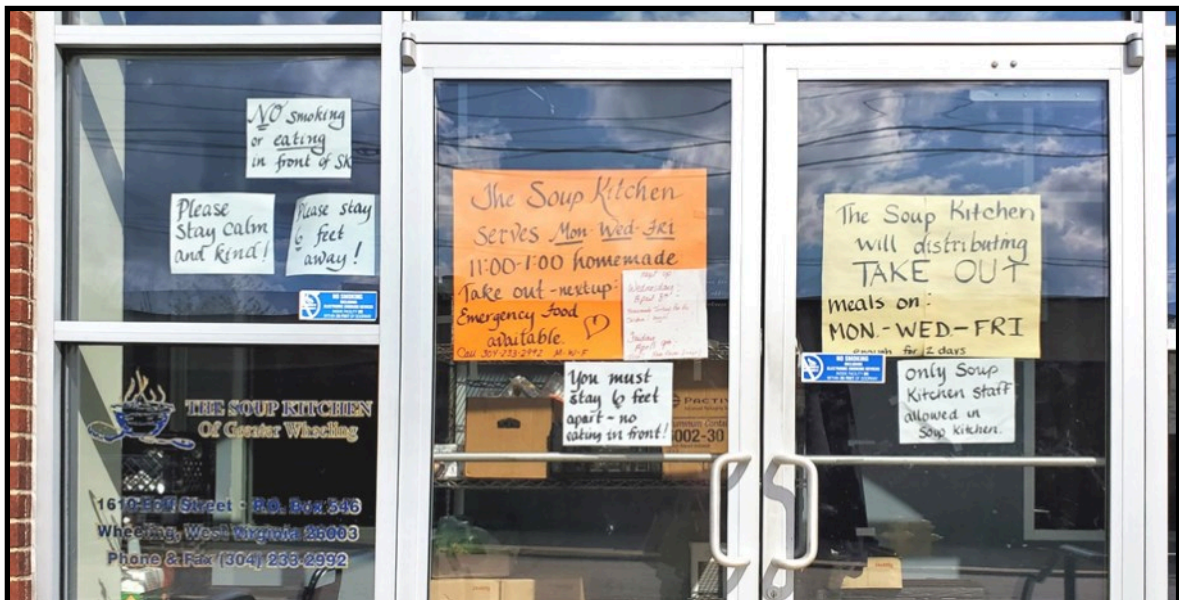 NO smoking
or eating
in front of SK
Please
Stay calm
and kind!
Please stay
6 feet
away!
NO SMOKING
THE SOUP KITCHEN
Of Greater Wheeling
1610 Eoff Street • P.O. Box 546
Wheeling, West Virginia 26003
Phone & Fax (304) 233-2992
The Soup Kitchen
Serves Mon-Wed-FRI
11:00-1:00 homemade
Take out - next up:
Emergency Food
available.
Call 304-233-2992 M-W-F
next up
Wednesday
April 8th
Friday
You must
stay 6 feet
apart - no
eating in front!
PACTIV
002-30
The Soup Kitchen
will distributing
TAKE OUT
meals on:
MON.-WED-FRI
enough for 2 days
NO SMOKING
only Soup
Kitchen Staff
allowed in
Soup Kitchen.